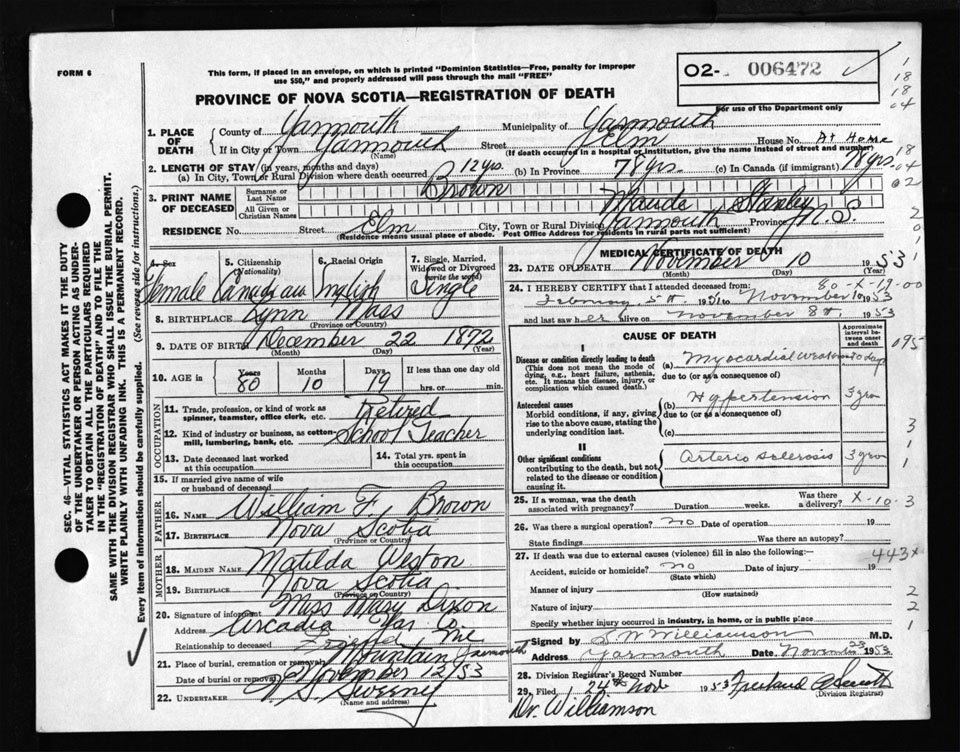 FORM 6
This form, if placed in an envelope, on which is printed "Dominion Statistics—Free, penalty for improper
use $50," and properly addressed will pass through the mail "FREE"
O2- 006472
For use of the Department only
PROVINCE OF NOVA SCOTIA—REGISTRATION OF DEATH
1. PLACE OF DEATH
County of Yarmouth Municipality of Yarmouth
If in City or Town Yarmouth (Name) Street Elm House No. At Home
(If death occurred in a hospital or institution, give the name instead of street and number)
2. LENGTH OF STAY (in years, months and days)
(a) In City, Town or Rural Division where death occurred 12 yrs. (b) In Province 78 yrs. (c) In Canada (if immigrant) 78 yrs.
3. PRINT NAME OF DECEASED
Surname or Last Name Brown
All Given or Christian Names Maude Stanley
RESIDENCE No. Street Elm City, Town or Rural Division Yarmouth Province N.S.
(Residence means usual place of abode. Post Office Address for residents in rural parts not sufficient)
4. Sex Female
5. Citizenship (Nationality) Canadian
6. Racial Origin English
7. Single, Married, Widowed or Divorced (write the word) Single
8. BIRTHPLACE Lynn Mass
(Province or Country)
9. DATE OF BIRTH December 22 1872
(Month) (Day) (Year)
10. AGE in Years 80 Months 10 Days 19 If less than one day old
hrs. or min.
OCCUPATION
11. Trade, profession, or kind of work as spinner, teamster, office clerk, etc. Retired
12. Kind of industry or business, as cotton-mill, lumbering, bank, etc. School Teacher
13. Date deceased last worked at this occupation
14. Total yrs. spent in this occupation
15. If married give name of wife or husband of deceased
FATHER
16. NAME William F. Brown
17. BIRTHPLACE Nova Scotia
(Province or Country)
MOTHER
18. MAIDEN NAME Matilda Weston
19. BIRTHPLACE Nova Scotia
(Province or Country)
20. Signature of informant Miss Mary Dixon
Address Arcadia Yar Co.
Relationship to deceased Friend
21. Place of burial, cremation or removal Mountain Yarmouth
Date of burial or removal November 12/53
22. UNDERTAKER V. S. Sweeny
(Name and address)
MEDICAL CERTIFICATE OF DEATH
23. DATE OF DEATH November 10 1953
(Month) (Day) (Year)
24. I HEREBY CERTIFY that I attended deceased from:
February 5th 1951 to November 10 1953
and last saw her alive on November 8th 1953
CAUSE OF DEATH
Approximate interval between onset and death
I
Disease or condition directly leading to death
(This does not mean the mode of dying, e.g., heart failure, asthenia, etc. It means the disease, injury, or complication which caused death.)
(a) Myocardial 10 days
due to (or as a consequence of)
Antecedent causes
Morbid conditions, if any, giving rise to the above cause, stating the underlying condition last.
(b) Hypertension 3 yrs
due to (or as a consequence of)
(c)
II
Other significant conditions
contributing to the death, but not related to the disease or condition causing it.
Arterio sclerosis 3 yrs
25. If a woman, was the death associated with pregnancy? Duration weeks. Was there a delivery?
26. Was there a surgical operation? no Date of operation 19
State findings Was there an autopsy?
27. If death was due to external causes (violence) fill in also the following:—
Accident, suicide or homicide? no Date of injury 19
(State which)
Manner of injury
(How sustained)
Nature of injury
Specify whether injury occurred in industry, in home, or in public place
Signed by S W Williamson M.D.
Address Yarmouth Date November 23 1953
28. Division Registrar's Record Number
29. Filed 24th Nov 1953
(Division Registrar)
Dr. Williamson
SEC. 46—VITAL STATISTICS ACT MAKES IT THE DUTY
OF THE UNDERTAKER OR PERSON ACTING AS UNDER-
TAKER TO OBTAIN ALL THE PARTICULARS REQUIRED
IN THE "REGISTRATION OF DEATH" AND TO FILE THE
SAME WITH THE DIVISION REGISTRAR WHO SHALL ISSUE THE BURIAL PERMIT.
WRITE PLAINLY WITH UNFADING INK. THIS IS A PERMANENT RECORD.
Every item of information should be carefully supplied. (See reverse side for instructions.)
80-X-19-00
095
X-10-3
443X